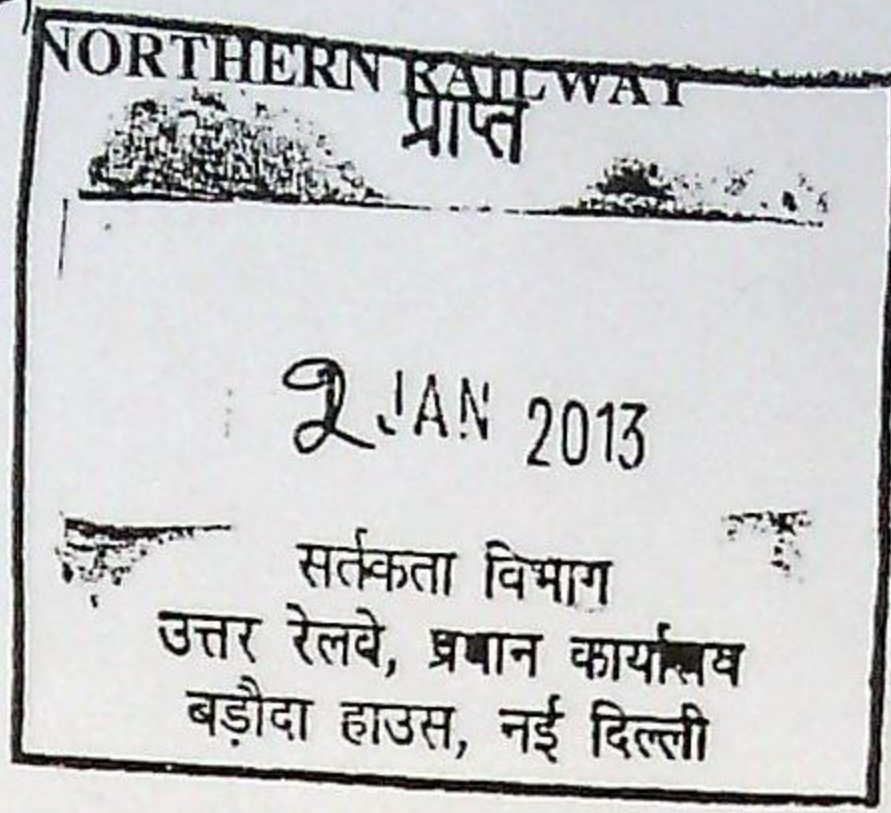 NORTHERN RAILWAY
प्राप्त
2 JAN 2013
सर्तकता विभाग
उत्तर रेलवे, प्रधान कार्यालय
बड़ौदा हाउस, नई दिल्ली